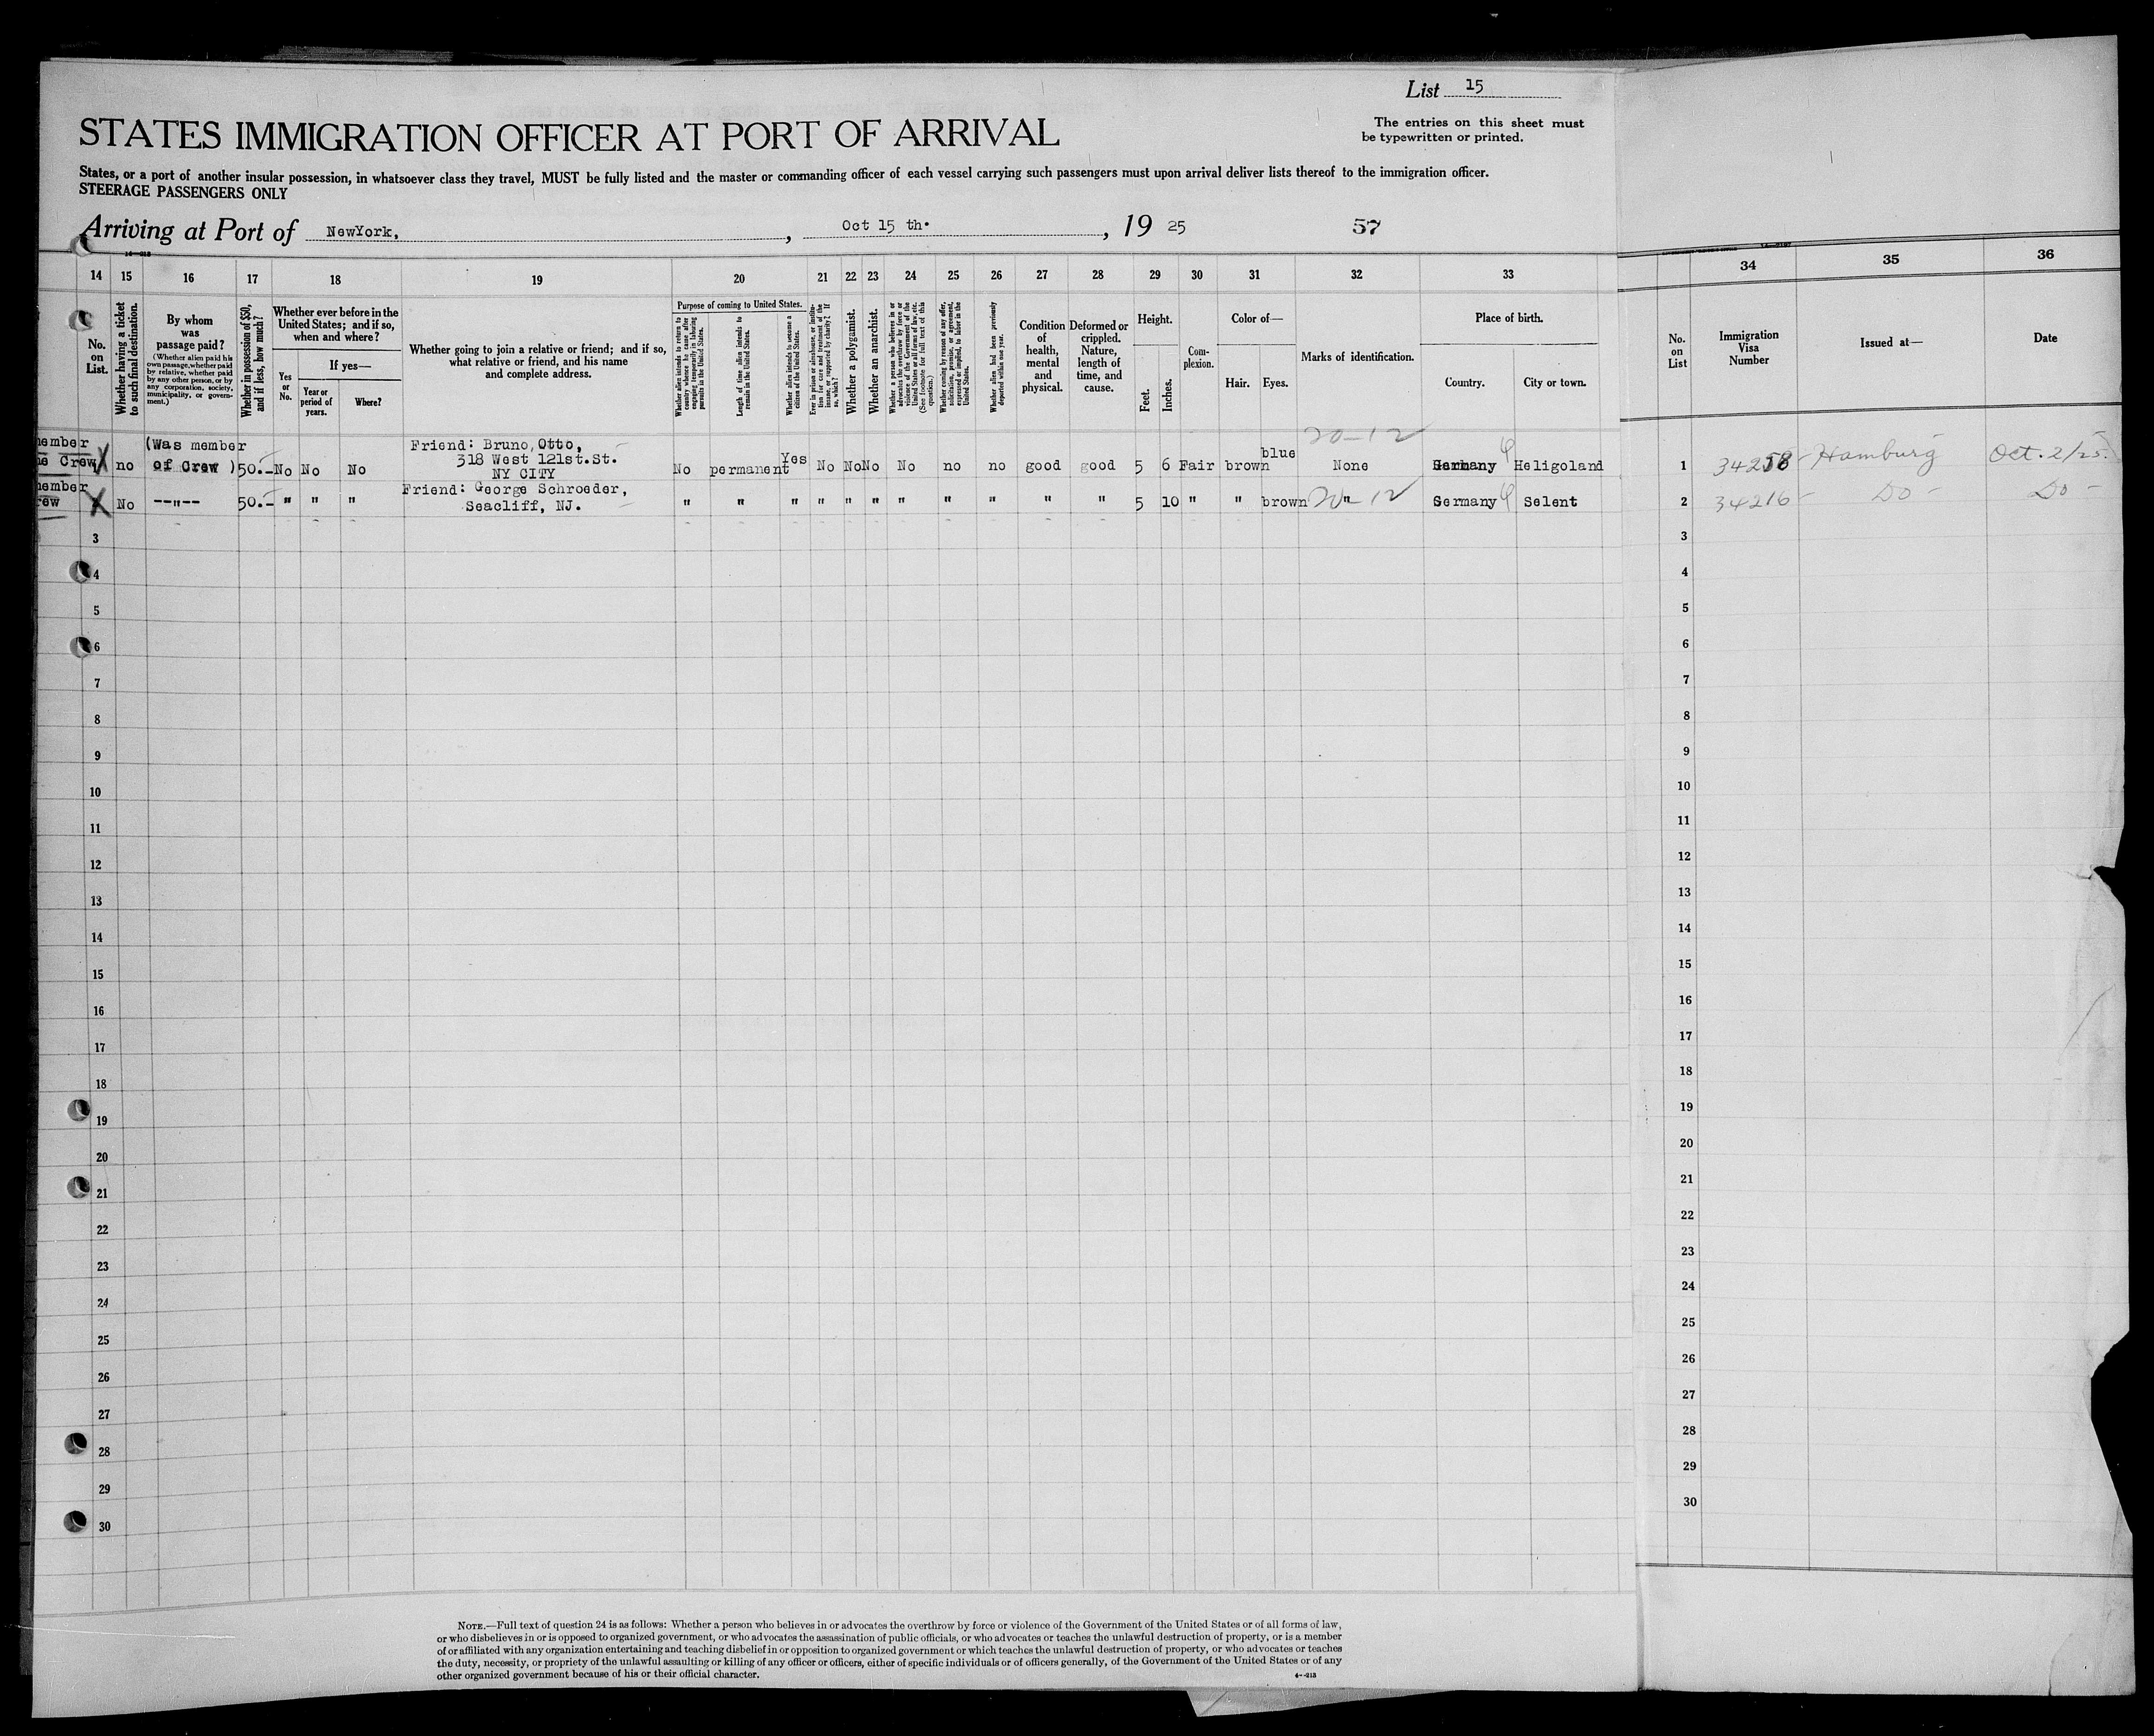 List 15
The entries on this sheet must
be typewritten or printed.
STATES IMMIGRATION OFFICER AT PORT OF ARRIVAL
States, or a port of another insular possession, in whatsoever class they travel, MUST be fully listed and the master or commanding officer of each vessel carrying such passengers must upon arrival deliver lists thereof to the immigration officer.
STEERAGE PASSENGERS ONLY
Arriving at Port of NewYork, , Oct 15 th. , 19 25 57
14 15 16 17 18 19 20 21 22 23 24 25 26 27 28 29 30 31 32 33 34 35 36
No. on List.
Whether having a ticket to such final destination.
By whom was passage paid?
(Whether alien paid his own passage, whether paid by relative, whether paid by any other person, or by any corporation, society, municipality, or government.)
Whether in possession of $50, and if less, how much?
Whether ever before in the United States; and if so, when and where?
Yes or No.
If yes—
Year or period of years.
Where?
Whether going to join a relative or friend; and if so, what relative or friend, and his name and complete address.
Purpose of coming to United States.
Whether alien intends to return to country whence he came after engaging temporarily in laboring pursuits in the United States.
Length of time alien intends to remain in the United States.
Whether alien intends to become a citizen of the United States.
Ever in prison or almshouse, or institution for care and treatment of the insane, or supported by charity? If so, which?
Whether a polygamist.
Whether an anarchist.
Whether a person who believes in or advocates the overthrow by force or violence of the Government of the United States or all forms of law, etc. (See footnote for full text of this question.)
Whether coming by reason of any offer, solicitation, promise, or agreement, expressed or implied, to labor in the United States.
Whether alien had been previously deported within one year.
Condition of health, mental and physical.
Deformed or crippled. Nature, length of time, and cause.
Height.
Feet.
Inches.
Complexion.
Color of—
Hair.
Eyes.
Marks of identification.
Place of birth.
Country.
City or town.
No. on List
Immigration Visa Number
Issued at—
Date
member (Was member Friend: Bruno Otto, blue 20-12
Crew X no of Crew ) 50.- No No No 318 West 121st.St. No permanent Yes No No No No no no good good 5 6 Fair brown None Germany Heligoland 1 34258 Hamburg Oct. 2/25.
NY CITY
member Friend: George Schroeder,
rew X No --"-- 50.- " " " Seacliff, NJ. " " " " " " " " " " " 5 10 " " brown 20-12 " Germany Selent 2 34216 Do Do
3 3
4 4
5 5
6 6
7 7
8 8
9 9
10 10
11 11
12 12
13 13
14 14
15 15
16 16
17 17
18 18
19 19
20 20
21 21
22 22
23 23
24 24
25 25
26 26
27 27
28 28
29 29
30 30
NOTE.—Full text of question 24 is as follows: Whether a person who believes in or advocates the overthrow by force or violence of the Government of the United States or of all forms of law,
or who disbelieves in or is opposed to organized government, or who advocates the assassination of public officials, or who advocates or teaches the unlawful destruction of property, or is a member
of or affiliated with any organization entertaining and teaching disbelief in or opposition to organized government or which teaches the unlawful destruction of property, or who advocates or teaches
the duty, necessity, or propriety of the unlawful assaulting or killing of any officer or officers, either of specific individuals or of officers generally, of the Government of the United States or of any
other organized government because of his or their official character.